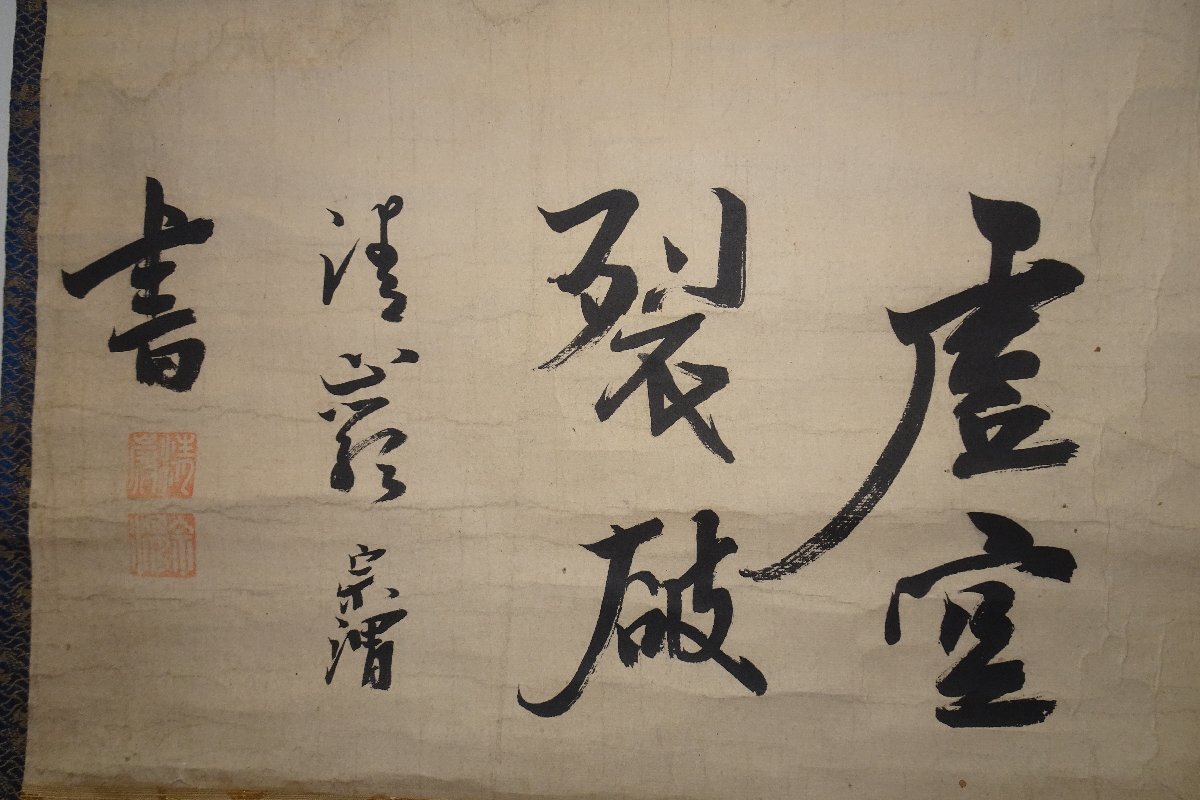 虚空
裂破
清巖宗渭
書